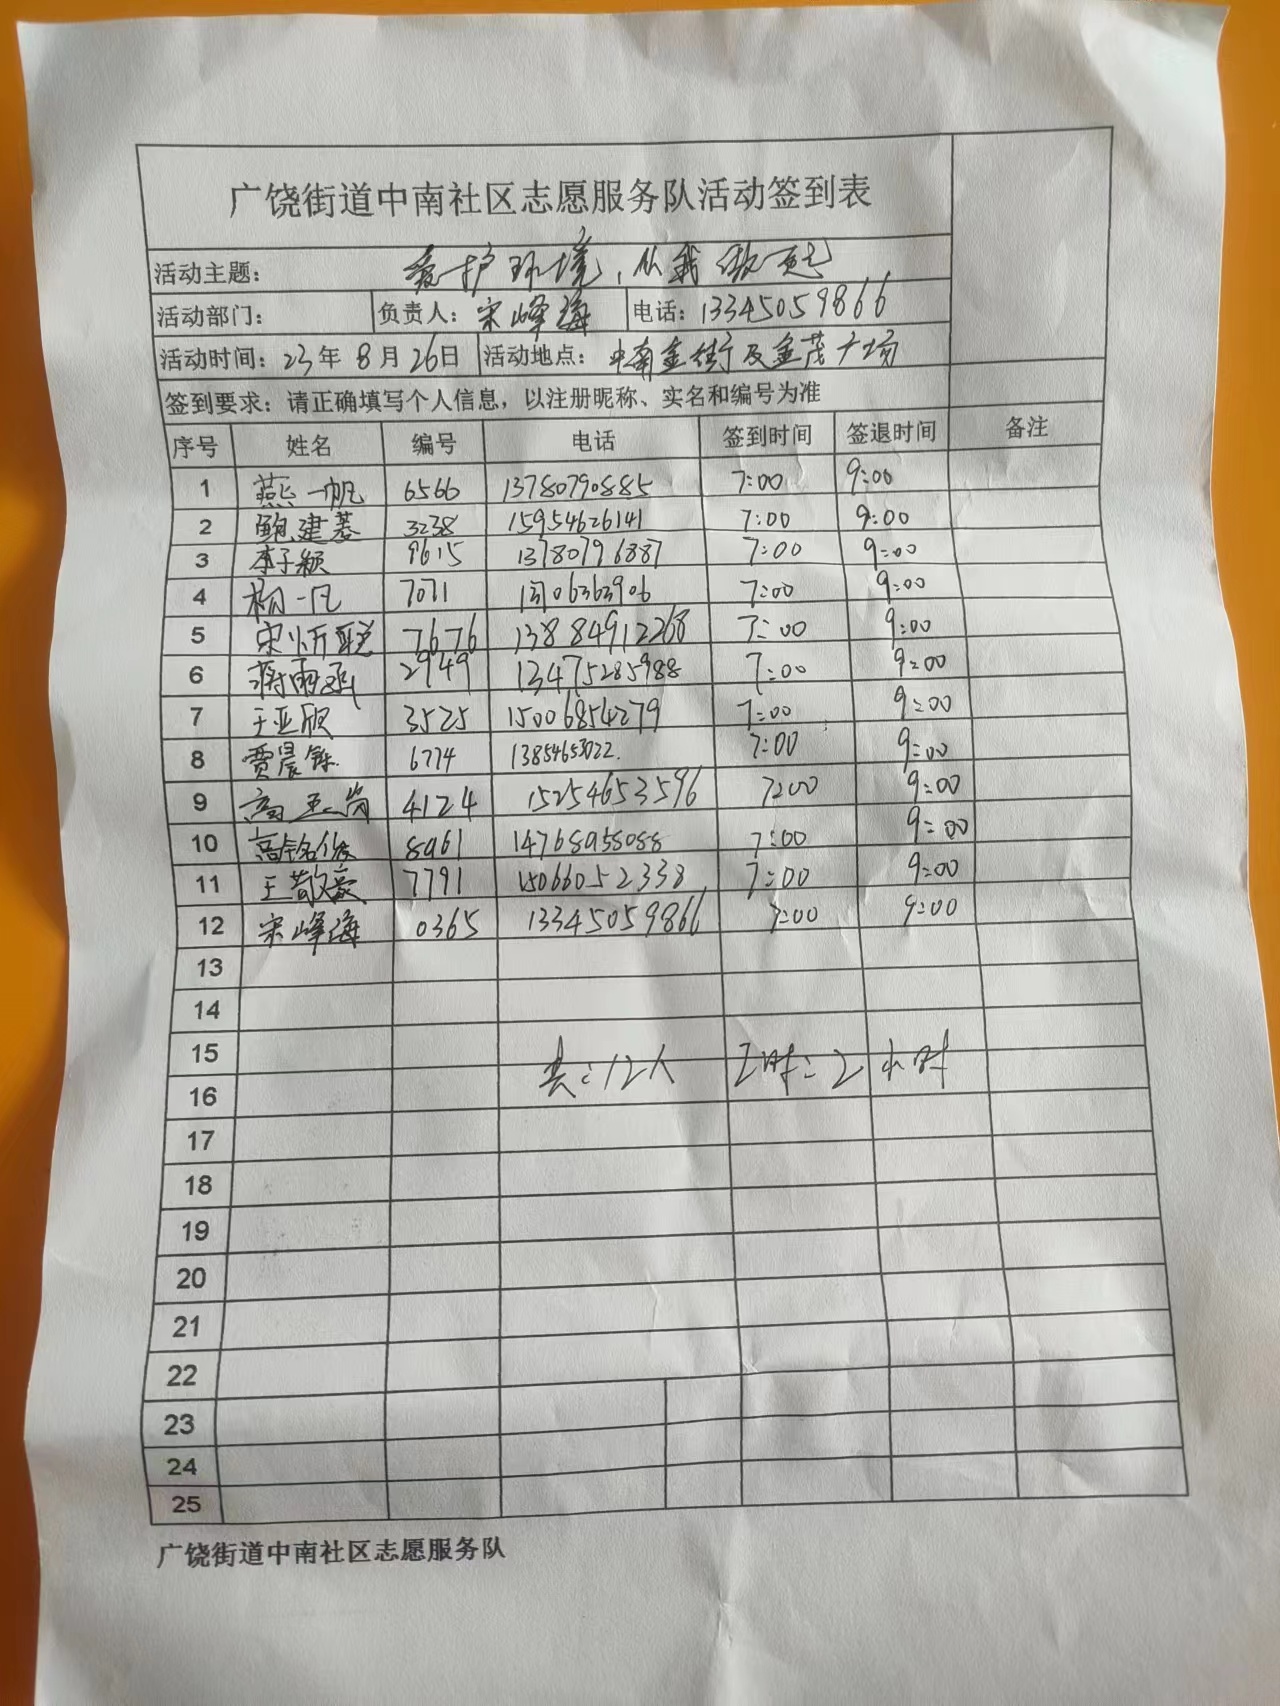 广饶街道中南社区志愿服务队活动签到表
活动主题: 爱护环境,从我做起
活动部门: 负责人: 宋峰海 电话: 13345059866
活动时间: 23年8月26日 活动地点: 中南金街及金茂广场
签到要求: 请正确填写个人信息, 以注册昵称、实名和编号为准
序号 姓名 编号 电话 签到时间 签退时间 备注
1 燕一帆 6566 13780790885 7:00 9:00
2 鲍建慕 3238 15954626141 7:00 9:00
3 李子颖 9615 13780796887 7:00 9:00
4 杨一凡 7071 06363906 7:00 9:00
5 宋忻聪 7676 13884912268 7:00 9:00
6 蒋雨函 2949 13475285988 7:00 9:00
7 于亚欣 3525 15006854279 7:00 9:00
8 贾晨铄 6774 13854653022. 7:00 9:00
9 高 4124 15254653596 7:00 9:00
10 高铭 8961 14768955088 7:00 9:00
11 王敬豪 7791 15066052338 7:00 9:00
12 宋峰海 0365 13345059866 7:00 9:00
13
14
15
共:12人 工时:2小时
16
17
18
19
20
21
22
23
24
25
广饶街道中南社区志愿服务队